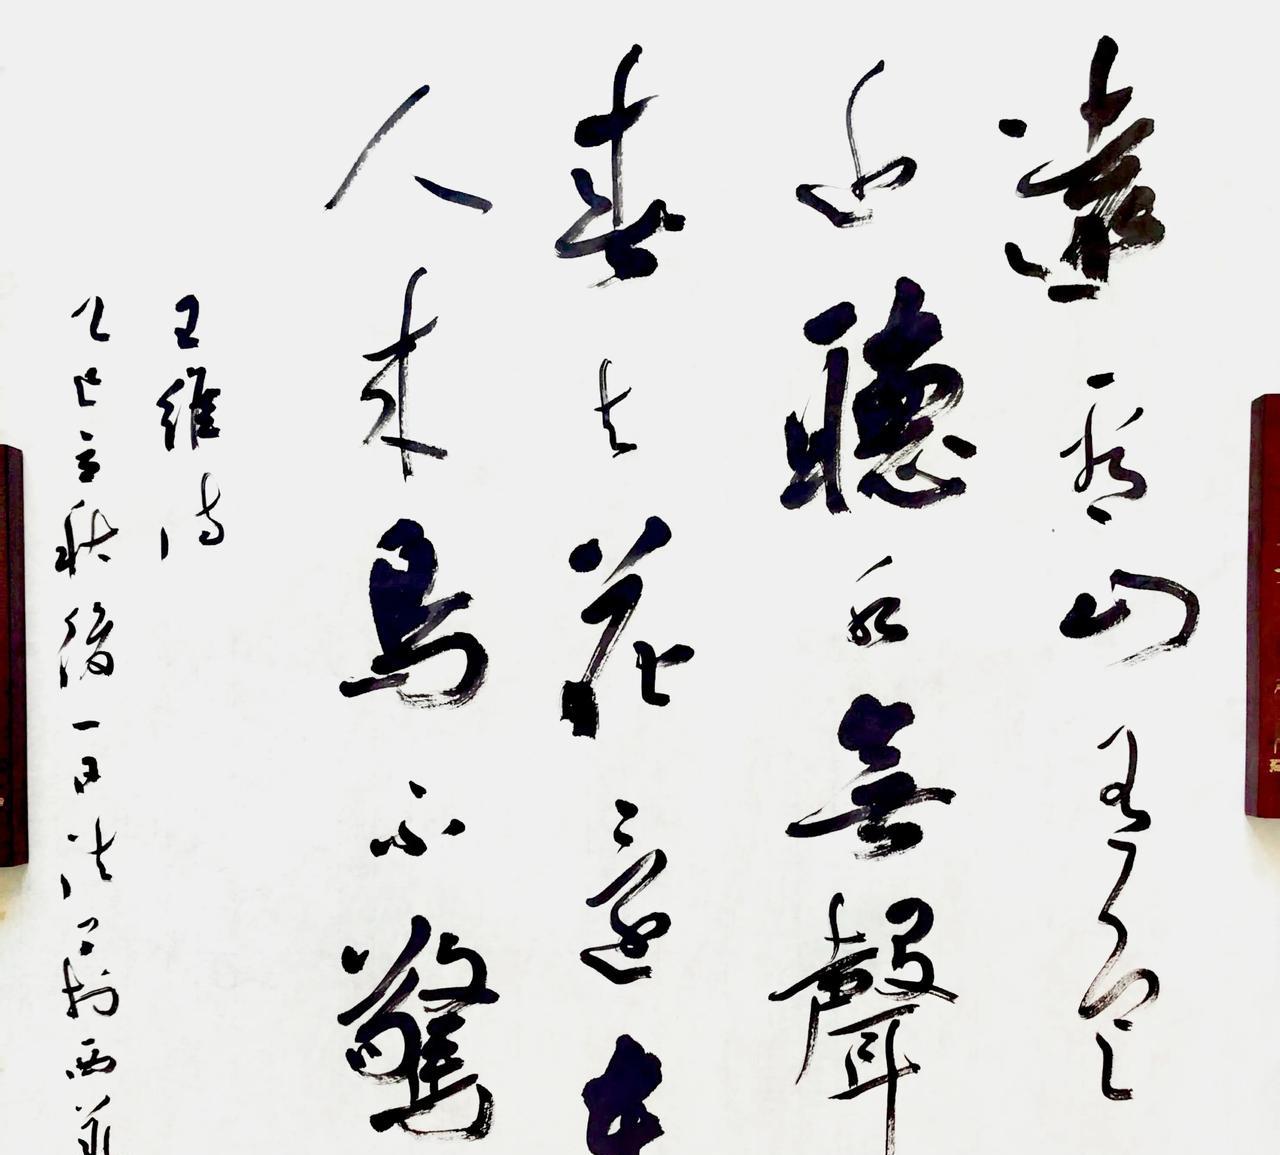 遠看山有色
近聽水無聲
春去花還在
人來鳥不驚
王維詩
乙巳立秋後一日